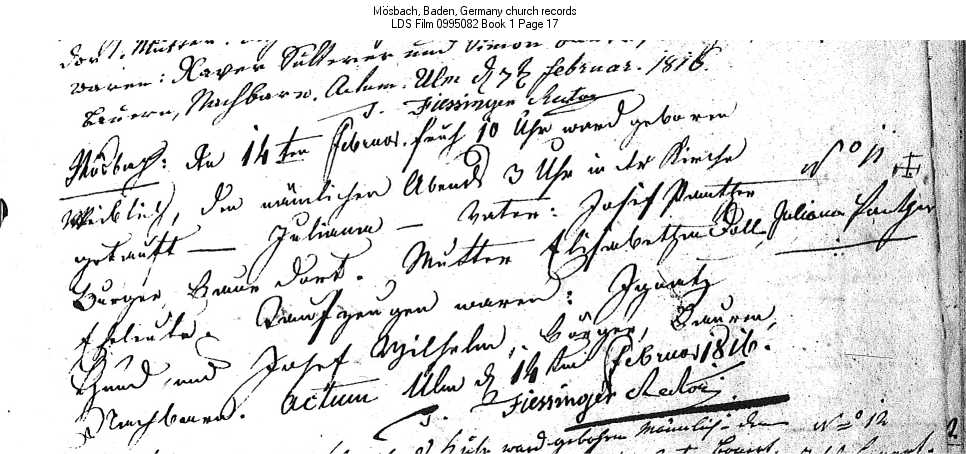 Mösbach, Baden, Germany church records
LDS Film 0995082 Book 1 Page 17
dort. Mutter:
waren: Xaver Sutterer und Simon
Bauern, Nachbarn. Actum Ulm d 7t Februar. 1816.
T. Fiessinger Rector
Mösbach: den 14ten Februar. früh 10 Uhr ward geboren
Weiblich, den nämlichen Abends 3 Uhr in der Kirche
N o 11
getauft — Juliana — Vater: Josef Panther
Juliana Panther
Burger, Bauer dort. Mutter Elisabetha Doll
Eheleute. Taufzeugen waren: Ignatz
und Josef Wilhelm, Bürger, Bauern,
Nachbarn. Actum Ulm d 14ten Februar 1816.
T. Fiessinger Rector
ward geboren Männlich den
N o 12
2